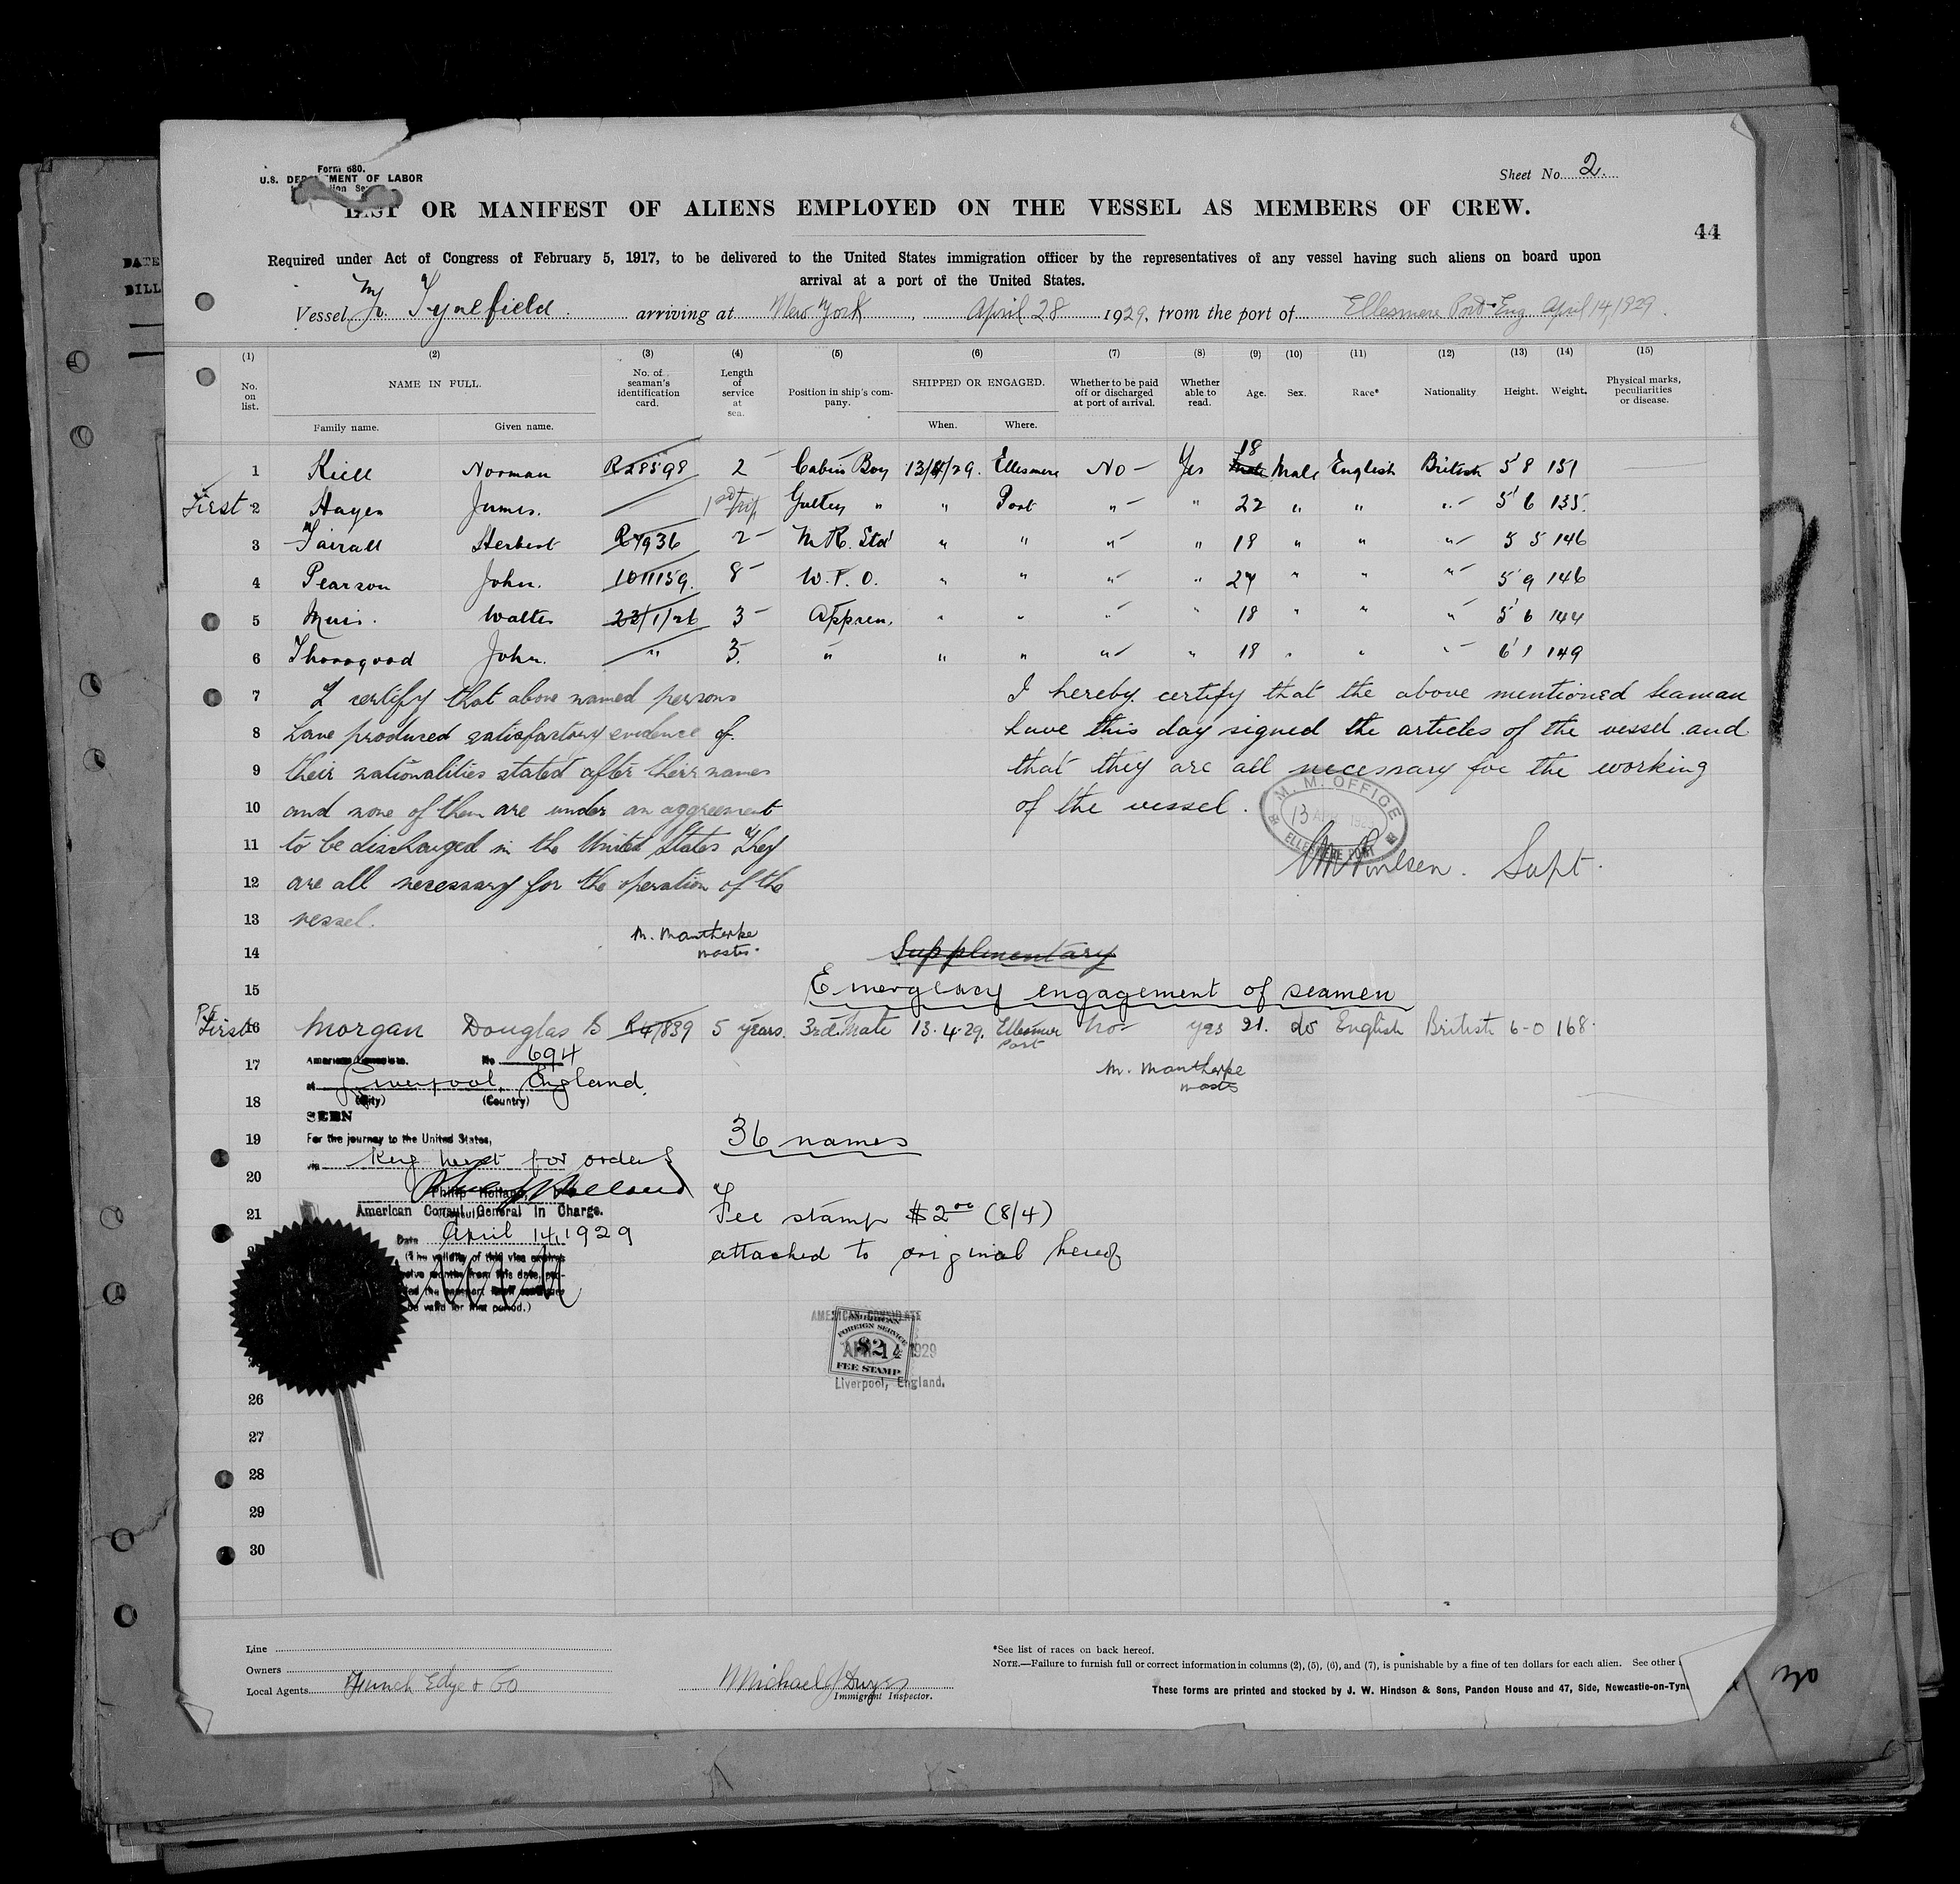 Form 680.
U.S. DEP MENT OF LABOR
Sheet No. 2.
LIST OR MANIFEST OF ALIENS EMPLOYED ON THE VESSEL AS MEMBERS OF CREW.
44
Required under Act of Congress of February 5, 1917, to be delivered to the United States immigration officer by the representatives of any vessel having such aliens on board upon
arrival at a port of the United States.
Vessel Tynefield arriving at New York, April 28 1929, from the port of Ellesmere Port Eng April 14, 1929.
(1) (2) (3) (4) (5) (6) (7) (8) (9) (10) (11) (12) (13) (14) (15)
No. on list. NAME IN FULL. Family name. Given name. No. of seaman's identification card. Length of service at sea. Position in ship's company. SHIPPED OR ENGAGED. When. Where. Whether to be paid off or discharged at port of arrival. Whether able to read. Age. Sex. Race* Nationality Height. Weight. Physical marks, peculiarities or disease.
1 Kiell Norman R28598 2 Cabin Boy 13/4/29. Ellesmere No Yes 18 Male English British 5' 8 151
First 2 Hayes James. 1st trip Galley " " Port " " 22 " " " 5' 6 135.
3 Fairall Herbert R7936 2 M.R. Std " " " " 18 " " " 5 5 146
4 Pearson John. 1011159. 8 W.T.O. " " " " 27 " " " 5' 9 146
5 Muir. Walter 23/1/26 3 Appren. " " " " 18 " " " 5' 6 144
6 Thorogood John. " 3. " " " " " 18 " " " 6' 1 149
7 I certify that above named persons
8 have produced satisfactory evidence of
9 their nationalities stated after their names
10 and none of them are under an aggreement
11 to be discharged in the United States They
12 are all necessary for the operation of the
13 vessel.
M. Mantherpe
master
I hereby certify that the above mentioned seaman
have this day signed the articles of the vessel and
that they are all necessary for the working
of the vessel.
M. M. OFFICE
13 APR 1929
ELLESMERE PORT
Supt.
14 Supplimentary
15 Emergency engagement of seamen
First 16 Morgan Douglas B R47839 5 years. 3rd Mate 13.4.29. Ellesmere Port No yes 21. do English British 6-0 168.
M. Mantherpe
master
17 American Consulate. No 694
at Liverpool, England.
18 (City) (Country)
SEEN
19 For the journey to the United States,
Key West for orders
20
Philip Holland,
21 American Consul General in Charge.
Date April 14, 1929
(The validity of this visa expires
twelve months from this date, pro-
be valid for that period.)
36 names
Fee stamp $2.00 (8/4)
attached to original hereof
AMERICAN CONSULATE
AMERICAN
FOREIGN SERVICE
$2
APR 14 1929
FEE STAMP
Liverpool, England.
26
27
28
29
30
Line
Owners
Local Agents Funch Edye & Co
Michael J Dwyer
Immigrant Inspector.
*See list of races on back hereof.
NOTE.—Failure to furnish full or correct information in columns (2), (5), (6), and (7), is punishable by a fine of ten dollars for each alien. See other
These forms are printed and stocked by J. W. Hindson & Sons, Pandon House and 47, Side, Newcastle-on-Tyne
DATE
BILL